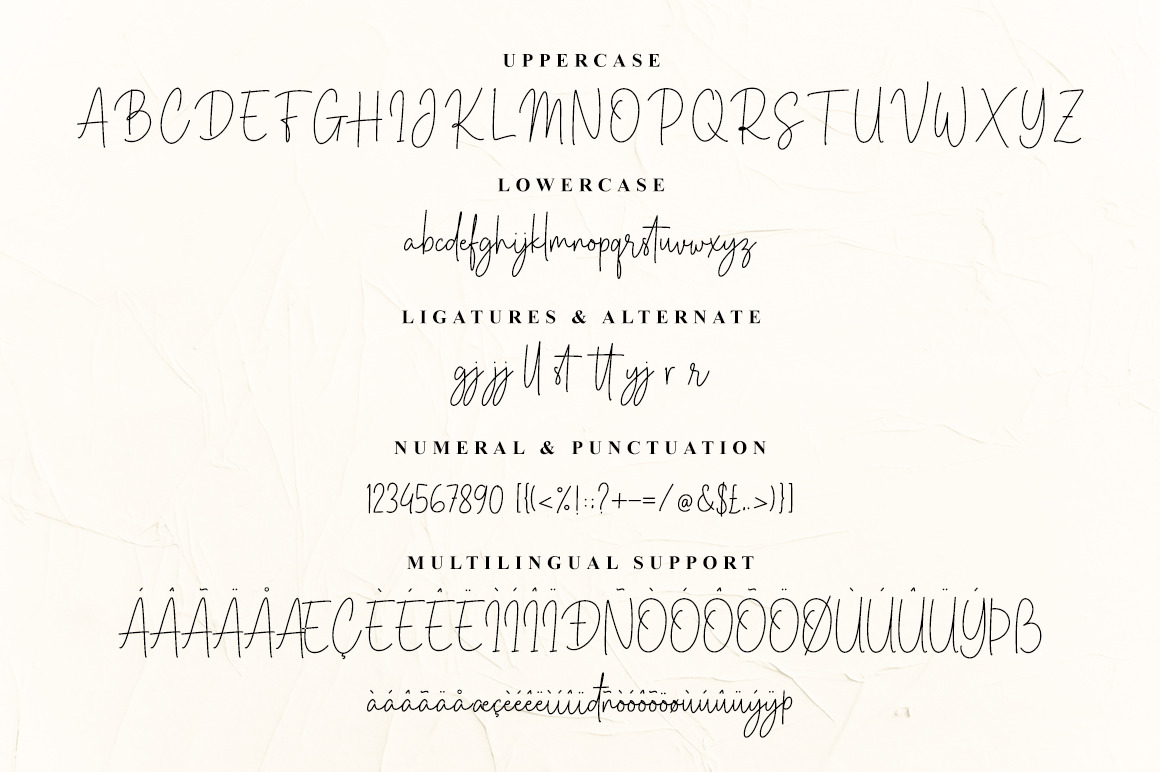 UPPERCASE
ABCDEFGHIJKLMNOPQRSTUVWXYZ
LOWERCASE
abcdefghijklmnopqrstuvwxyz
LIGATURES & ALTERNATE
gj jj ll st tt yj r r
NUMERAL & PUNCTUATION
1234567890 [{(<%!:;?+–=/@&$£,.>)}]
MULTILINGUAL SUPPORT
ÁÂÃÄÅÆÇÈÉÊËÌÍÎÏÐÑÒÓÔÕÖØÙÚÛÜÝÞß
àáâãäåæçèéêëìíîïđñòóôõöøùúûüýÿþ